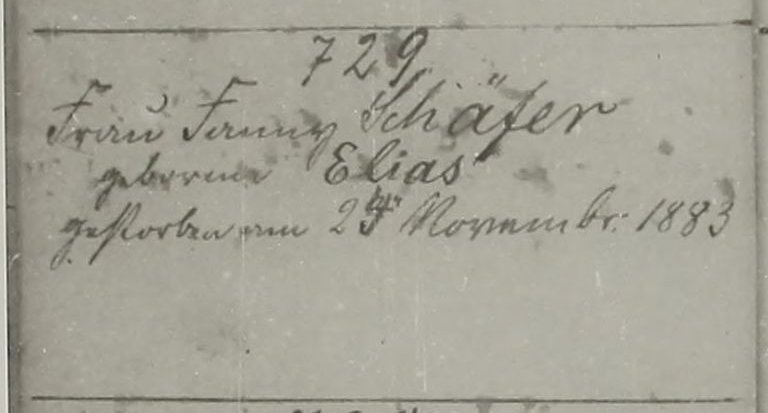 729
Frau Fanny Schäfer
geborene Elias
gestorben am Novembr. 1883